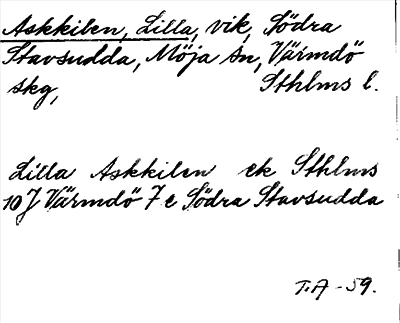 Askkilen, Lilla, vik, Södra
Stavsudda, Möja sn, Värmdö
skg, Sthlms l.
Lilla Askkilen ek Sthlms
10J Värmdö 7e Södra Stavsudda
T.A -59.